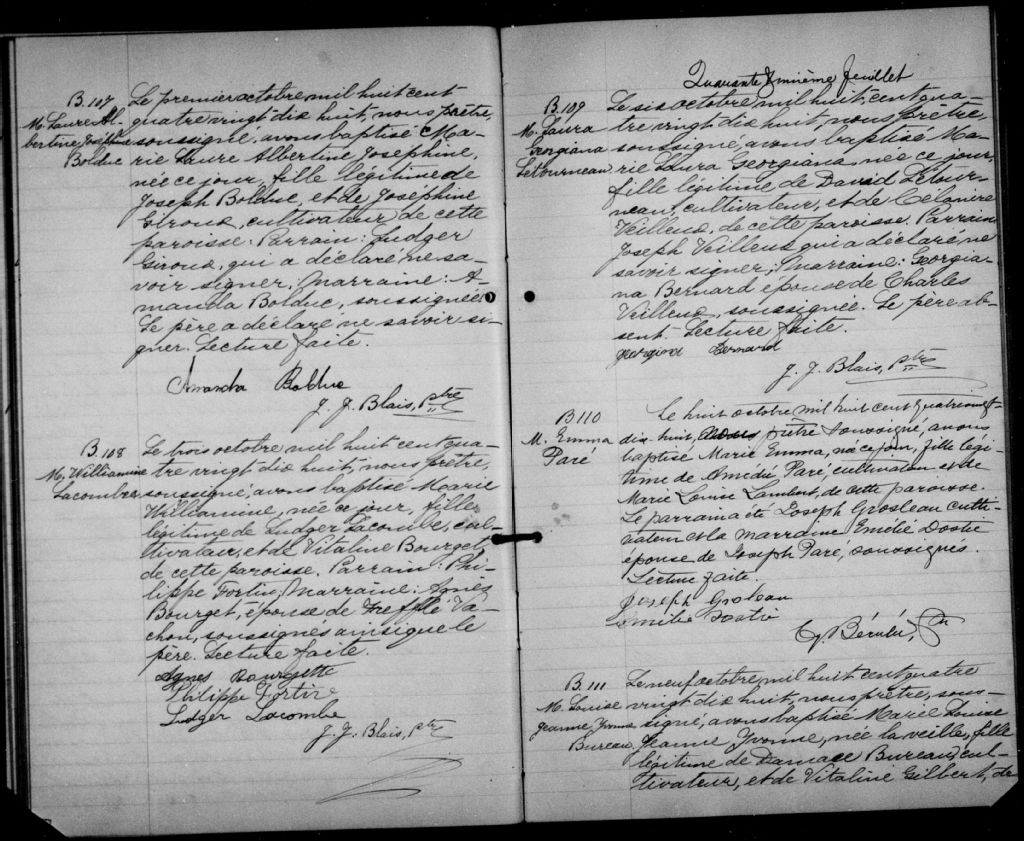 B. 107
M. Laure Al-
bertine, Joséph.
Bolduc
Le premier octobre mil huit cent
quatre vingt dix huit, nous prêtre,
soussigné, avons baptisé Ma-
rie Laure Albertine Joséphine,
née ce jour, fille légitime de
Joseph Bolduc, et de Joséphine
Giroux, cultivateur, de cette
paroisse. Parrain: Ludger
Giroux, qui a déclaré ne sa-
voir signer, Marraine: A-
manda Bolduc, soussignée.
Le père a déclaré ne savoir si-
gner. Lecture faite.
Amanda Bolduc
J. J. Blais, ptre
B. 108
M. Williamine
Lacombe
Le trois octobre mil huit cent qua-
tre vingt dix huit, nous prêtre,
soussigné, avons baptisé Marie
Williamine, née ce jour, fille
légitime de Ludger Lacombe, cul-
tivateur, et de Vitaline Bourget
de cette paroisse. Parrain: Phi-
lippe Fortin, Marraine: Agnès
Bourget, épouse de Trefflé Va-
chon, soussignés ainsi que le
père. Lecture faite.
Agnes Bourgette
Philippe Fortin
Ludger Lacombe
J. J. Blais, ptre
Quarante feuillet
B. 109
M. Laura
Georgiana
Letourneau
Le six octobre mil huit cent qua-
tre vingt dix huit, nous prêtre,
soussigné, avons baptisé Ma-
rie Laura Georgiana, née ce jour,
fille légitime de David Létour-
neau, cultivateur, et de Célanire
Veilleux, de cette paroisse. Parrain
Joseph Veilleux qui a déclaré ne
savoir signer, Marraine: Georgia-
na Bernard épouse de Charles
Veilleux, soussignée. Le père ab-
sent. Lecture faite.
Georgiana Bernard
J. J. Blais, ptre
B 110
M. Emma
Paré
Le huit octobre mil huit cent quatrevingt-
dix-huit, prêtre soussigné, avons
baptisé Marie Emma, née ce jour, fille légi-
time de Amédée Paré, cultivateur et de
Marie Louise Lambert, de cette paroisse.
Le parrain a été Joseph Grosleau culti-
vateur et la marraine Emilie Dostie
épouse de Joseph Paré, soussignés.
Lecture faite.
Joseph Grosleau
Emilie Dostie
Bérubé, Ptr
B. 111
M. Louise
Jeanne Yvonne
Bureau
Le neuf octobre mil huit cent quatre
vingt dix huit, nous prêtre, sous-
signé, avons baptisé Marie Louise
Jeanne Yvonne, née la veille, fille
légitime de Damase Bureau, cul-
tivateur, et de Vitaline Gilbert, de